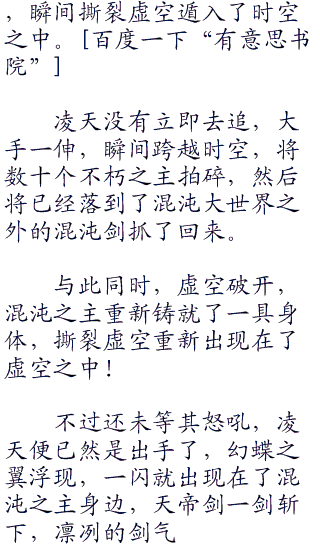 ，瞬间撕裂虚空遁入了时空
之中。[百度一下“有意思书
院”]
凌天没有立即去追，大
手一伸，瞬间跨越时空，将
数十个不朽之主拍碎，然后
将已经落到了混沌大世界之
外的混沌剑抓了回来。
与此同时，虚空破开，
混沌之主重新铸就了一具身
体，撕裂虚空重新出现在了
虚空之中！
不过还未等其怒吼，凌
天便已然是出手了，幻蝶之
翼浮现，一闪就出现在了混
沌之主身边，天帝剑一剑斩
下，凛冽的剑气